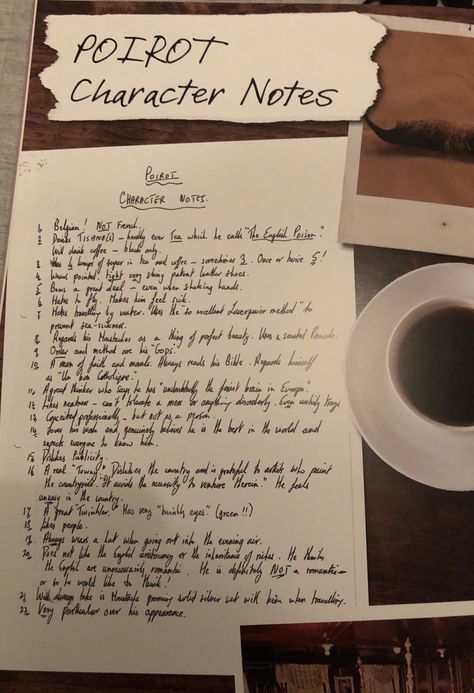 POIROT
Character Notes
POIROT
CHARACTER NOTES.
1. Belgian! NOT French.
2. Drinks TISANE(S) – hardly ever Tea which he calls "The English Poison."
Will drink coffee – black only.
3. Has 4 lumps of sugar in tea and coffee – sometimes 3. Once or twice 5!
4. Wears pointed, tight, very shiny patent leather shoes.
5. Bows a great deal – even when shaking hands.
6. Hates to fly. Makes him feel sick.
7. Hates travelling by water. Uses the "so excellent Laverguier method" to
prevent sea-sickness.
8. Regards his Moustache as a thing of perfect beauty. Uses a scented Pomade.
9. Order and method are his "Gods".
10. A man of faith and morals. Always reads his Bible. Regards himself
as "Un bon Catholique".
11. A great thinker who says he has "undoubtedly the finest brain in Europe."
12. Likes neatness – can't tolerate a mess or anything disorderly. Even untidy
13. Conceited professionally – but not as a person.
14. Loves his work and genuinely believes he is the best in the world and
expects everyone to know him.
15. Dislikes Publicity.
16. A real "Towny". Dislikes the country and is grateful to artists who paint
the countryside "It avoids the necessity to venture therein." He feels
uneasy in the country.
17. A great Twinkler. Has very "twinkly eyes". (green!!)
18. Likes people.
19. Always wears a hat when going out into the evening air.
20. Does not like the English aristocracy or the inheritance of riches. He thinks
the English are unnecessarily romantic. He is definitely NOT a romantic –
or so he would like to think!
21. Will always take is Moustache grooming solid silver set with him when travelling.
22. Very particular over his appearance.